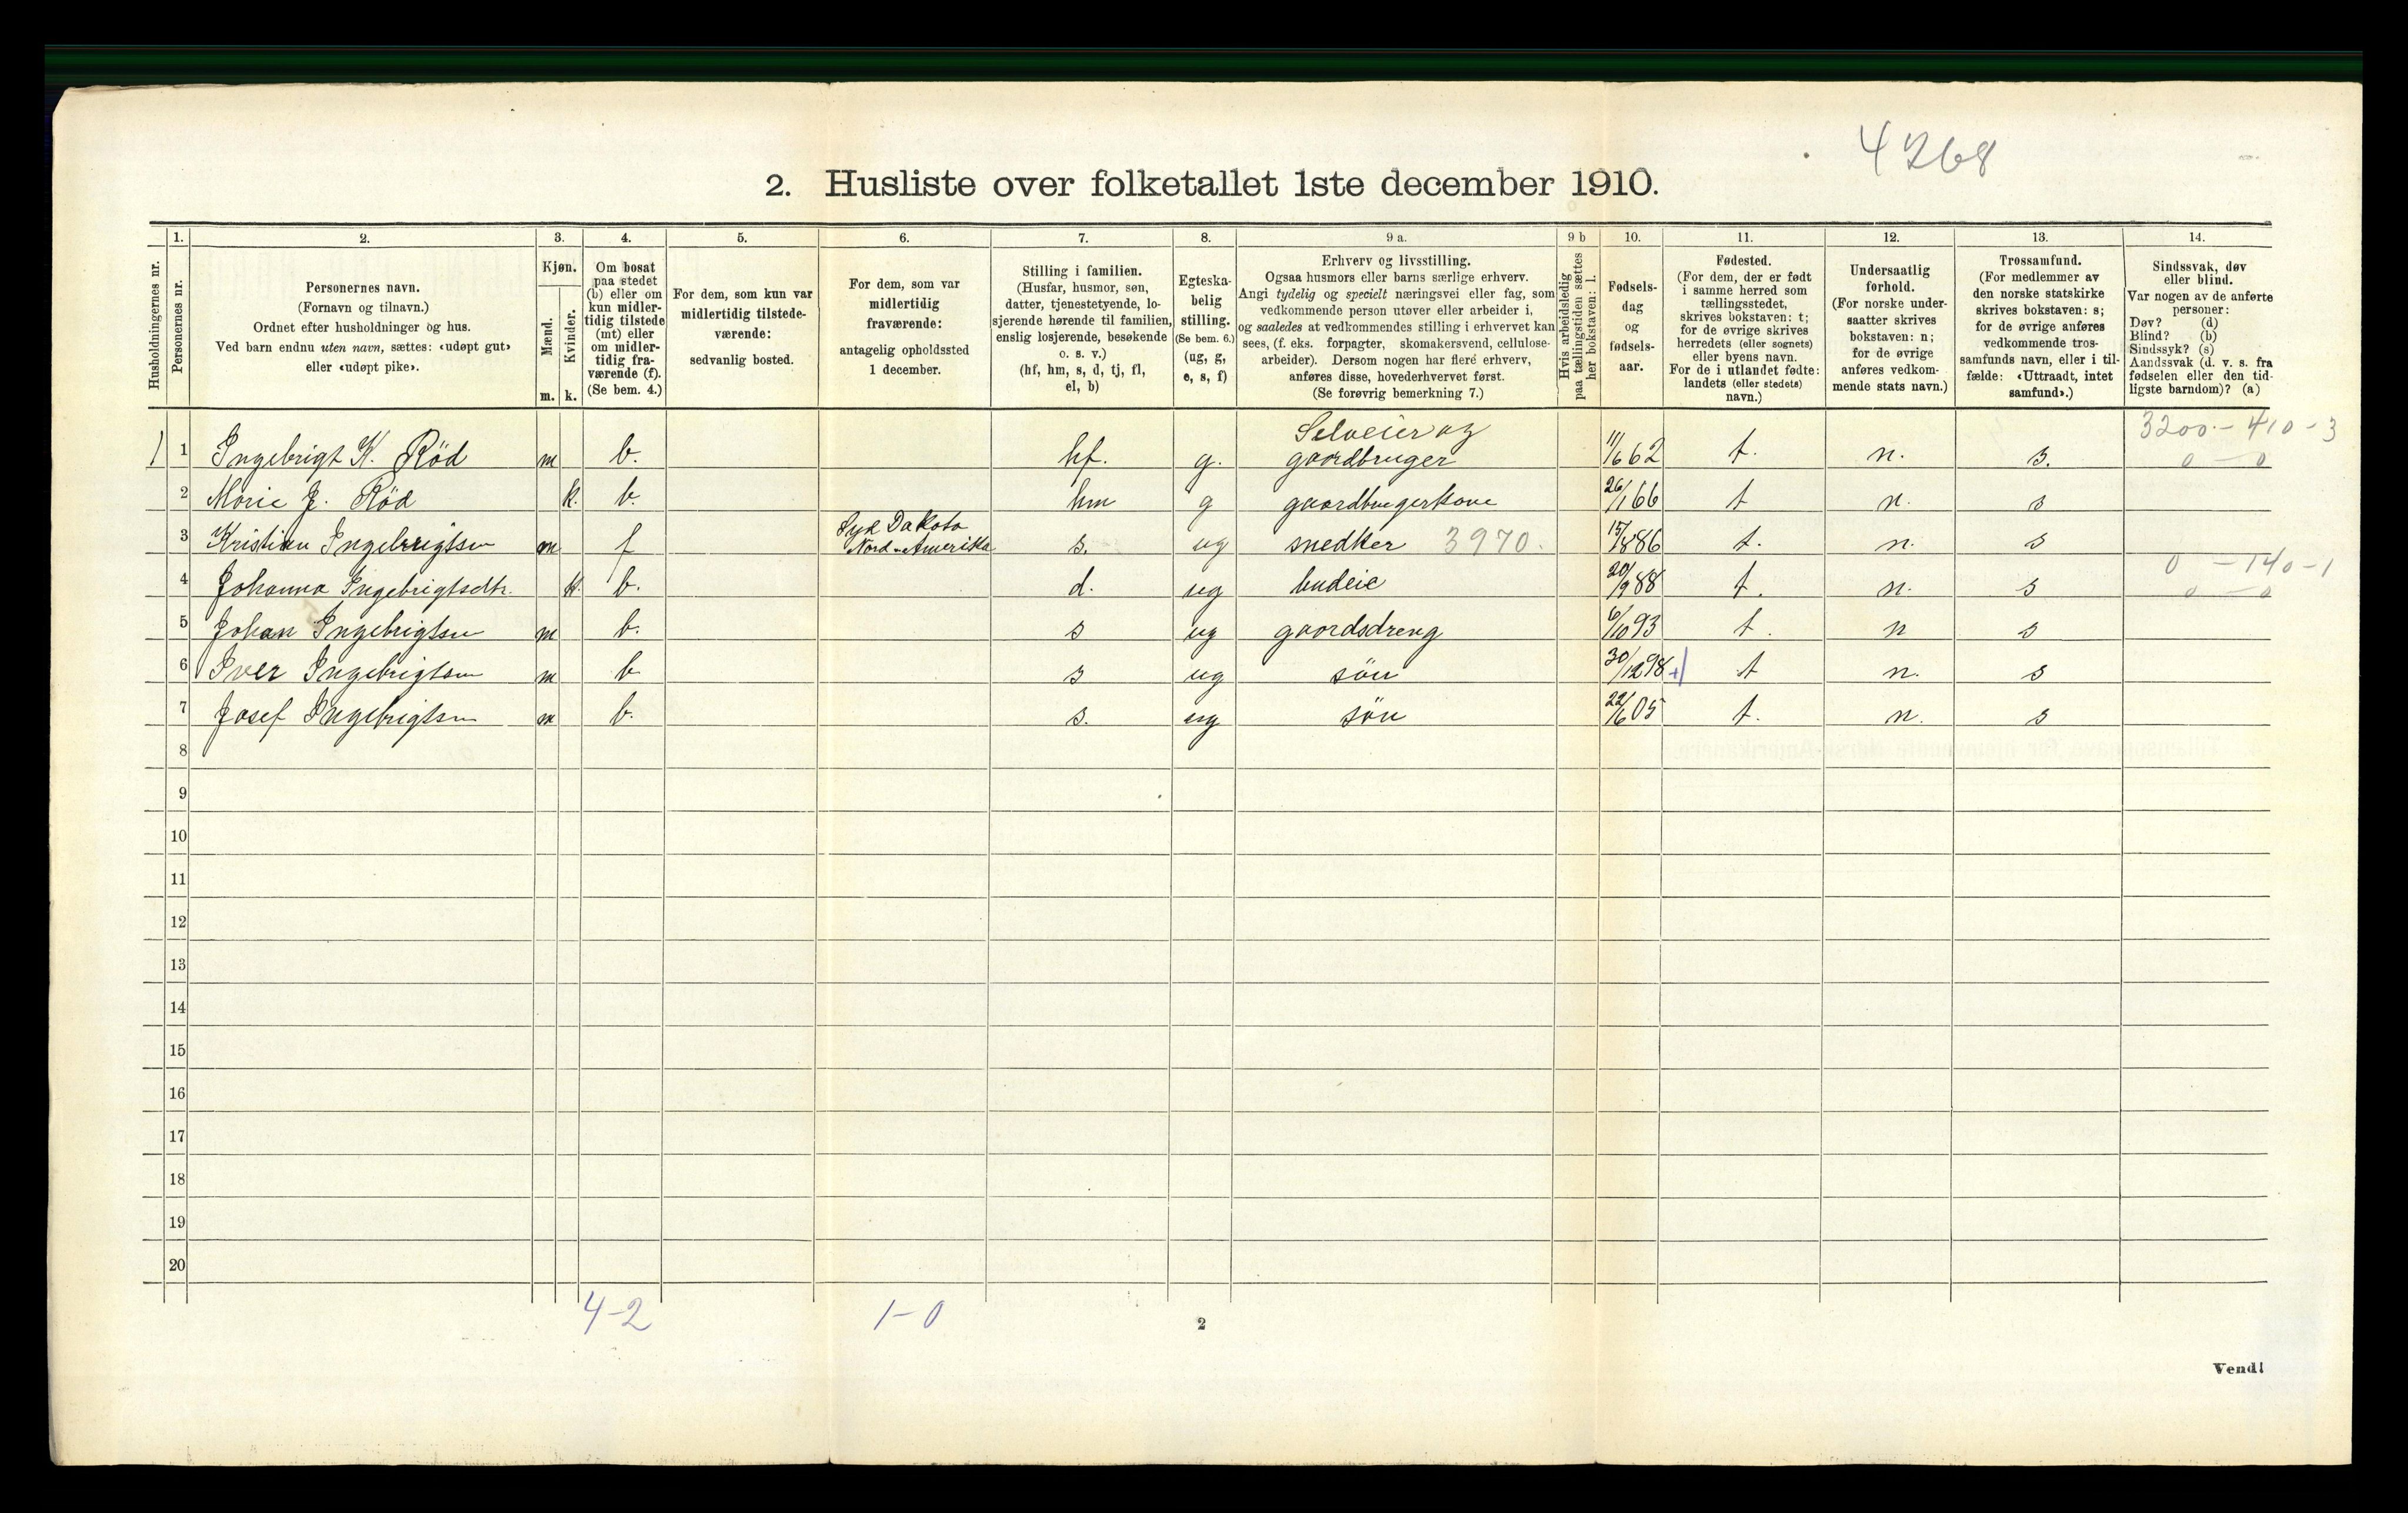 4268
2. Husliste over folketallet 1ste december 1910.
Husholdningernes nr.
1.
Personernes nr.
2.
Personernes navn.
(Fornavn og tilnavn.)
Ordnet efter husholdninger og hus.
Ved barn endnu uten navn, sættes: «udøpt gut»
eller «udøpt pike».
3.
Kjøn.
Mænd.
Kvinder.
m. k.
4.
Om bosat
paa stedet
(b) eller om
kun midler-
tidig tilstede
(mt) eller
om midler-
tidig fra-
værende (f).
(Se bem. 4.)
5.
For dem, som kun var
midlertidig tilstede-
værende:
sedvanlig bosted.
6.
For dem, som var
midlertidig
fraværende:
antagelig opholdssted
1 december.
7.
Stilling i familien.
(Husfar, husmor, søn,
datter, tjenestetyende, lo-
sjerende hørende til familien,
enslig losjerende, besøkende
o. s. v.)
(hf, hm, s, d, tj, fl,
el, b)
8.
Egteska-
belig
stilling.
(Se bem. 6.)
(ug, g,
e, s, f)
9 a.
Erhverv og livsstilling.
Ogsaa husmors eller barns særlige erhverv.
Angi tydelig og specielt næringsvei eller fag, som
vedkommende person utøver eller arbeider i,
og saaledes at vedkommendes stilling i erhvervet kan
sees, (f. eks. forpagter, skomakersvend, cellulose-
arbeider). Dersom nogen har flere erhverv,
anføres disse, hovederhvervet først.
(Se forøvrig bemerkning 7.)
9 b
Hvis arbeidsledig
paa tællingstiden sættes
her bokstaven: l.
10.
Fødsels-
dag
og
fødsels-
aar.
11.
Fødested.
(For dem, der er født
i samme herred som
tællingsstedet,
skrives bokstaven: t;
for de øvrige skrives
herredets (eller sognets)
eller byens navn.
For de i utlandet fødte:
landets (eller stedets)
navn.)
12.
Undersaatlig
forhold.
(For norske under-
saatter skrives
bokstaven: n;
for de øvrige
anføres vedkom-
mende stats navn.)
13.
Trossamfund.
(For medlemmer av
den norske statskirke
skrives bokstaven: s;
for de øvrige anføres
vedkommende tros-
samfunds navn, eller i til-
fælde: «Uttraadt, intet
samfund».)
14.
Sindssvak, døv
eller blind.
Var nogen av de anførte
personer:
Døv? (d)
Blind? (b)
Sindssyk? (s)
Aandssvak (d. v. s. fra
fødselen eller den tid-
ligste barndom)? (a)
3200 - 410 - 3
Selveier og
1 1 Ingebrigt K. Röd m b. hf. g. gaardbruger 11/6 62 t. n. s. 0 - 0
2 Marie J. Röd k. b. hm g gaardbrugerkone 26/1 66 t n. s
Syd Dakota
3 Kristian Ingebrigtsen m f Nord-Amerika s. ug snedker 3970. 15/8 86 t. n. s
0 - 140 - 1
4 Johanna Ingebrigtsdtr. k. b. d. ug budeie 20/9 88 t. n. s 0 - 0
5 Johan Ingebrigtsen m b. s ug gaardsdreng 6/10 93 t. n s
6 Iver Ingebrigtsen m b s ug sön 30/12 98 t n. s
7 Josef Ingebrigtsen m b. s. ug sön 22/6 05 t. n. s
8
9
10
11
12
13
14
15
16
17
18
19
20
4-2 1-0
2
Vend!